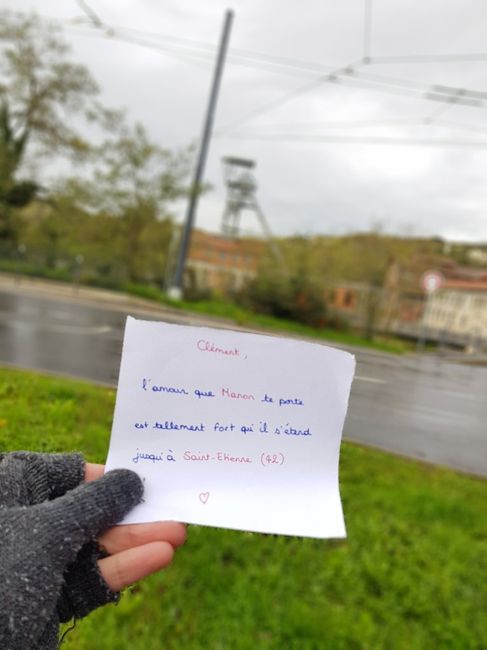 Clément,
l'amour que Manon te porte
est tellement fort qu'il s'étend
jusqu'à Saint-Etienne (42)